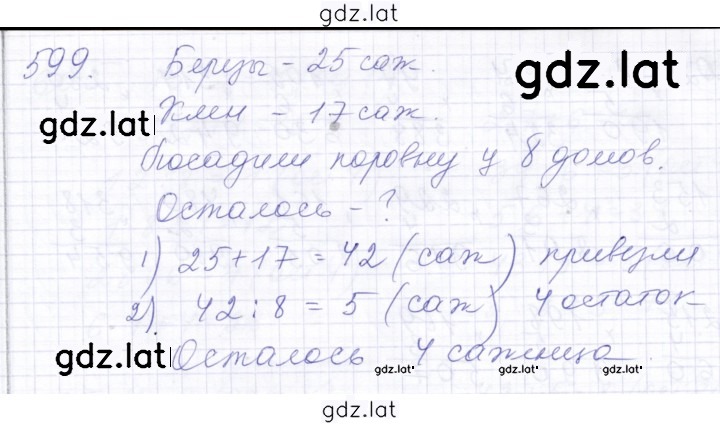 gdz.lat
599. Березы - 25 саж.
gdz.lat
gdz.lat
Клен - 17 саж.
Посадили поровну у 8 домов.
Осталось - ?
1) 25+17 = 42 (саж) привезли
2) 42 : 8 = 5 (саж) 4 остаток
gdz.lat
Осталось 4 саженца.
gdz.lat
gdz.lat
gdz.lat